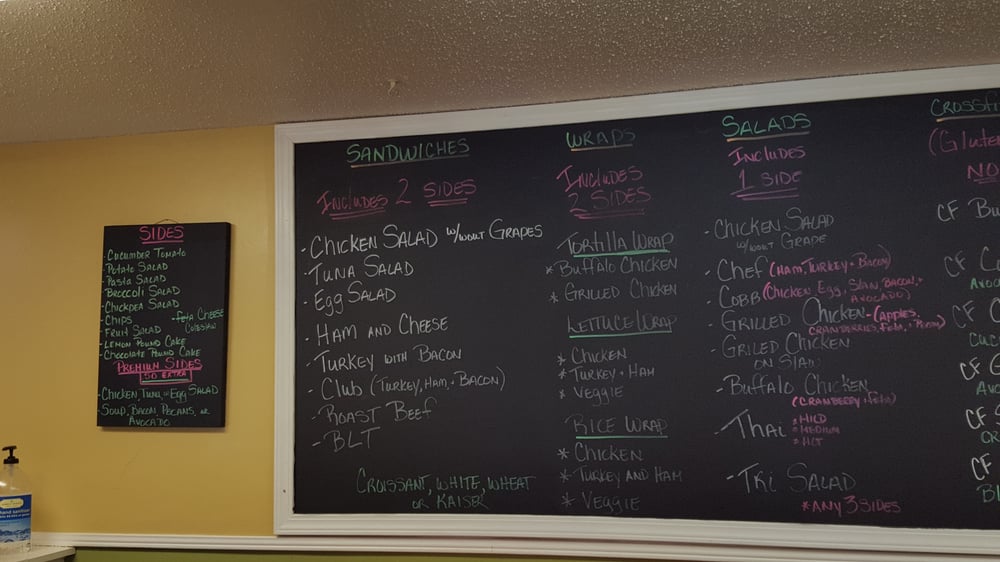 SIDES
- CUCUMBER TOMATO
- POTATO SALAD
- PASTA SALAD
- BROCCOLI SALAD
- CHICKPEA SALAD
- CHIPS
- FETA CHEESE
- FRUIT SALAD
COLESLAW
- LEMON POUND CAKE
- CHOCOLATE POUND CAKE
PREMIUM SIDES
.50 EXTRA
- CHICKEN, TUNA, EGG SALAD
- SOUP, BACON, PECANS, or
AVOCADO
SANDWICHES
INCLUDES 2 SIDES
- CHICKEN SALAD w/wout GRAPES
- TUNA SALAD
- EGG SALAD
- HAM AND CHEESE
- TURKEY WITH BACON
- CLUB (TURKEY, HAM + BACON)
- ROAST BEEF
- BLT
CROISSANT, WHITE, WHEAT
OR KAISER
WRAPS
INCLUDES
2 SIDES
TORTILLA WRAP
* BUFFALO CHICKEN
* GRILLED CHICKEN
LETTUCE WRAP
* CHICKEN
* TURKEY + HAM
* VEGGIE
RICE WRAP
* CHICKEN
* TURKEY AND HAM
* VEGGIE
SALADS
INCLUDES
1 SIDE
- CHICKEN SALAD
w/wout GRAPE
- CHEF (HAM, TURKEY + BACON)
- COBB (CHICKEN EGG, BACON,
AVOCADO)
- GRILLED CHICKEN - (APPLES,
CRANBERRIES, Feta,
- GRILED CHICKEN
ON
- BUFFALO CHICKEN
(CRANBERRY + Feta)
- THAI
* MILD
* MEDIUM
* HOT
- TRI SALAD
* ANY 3 SIDES
CROSSFI
(Glute
NO
CF BU
CF C
AVOC
CF C
CUC
CF G
AV
CF S
OR
CF
BL
hand sanitizer